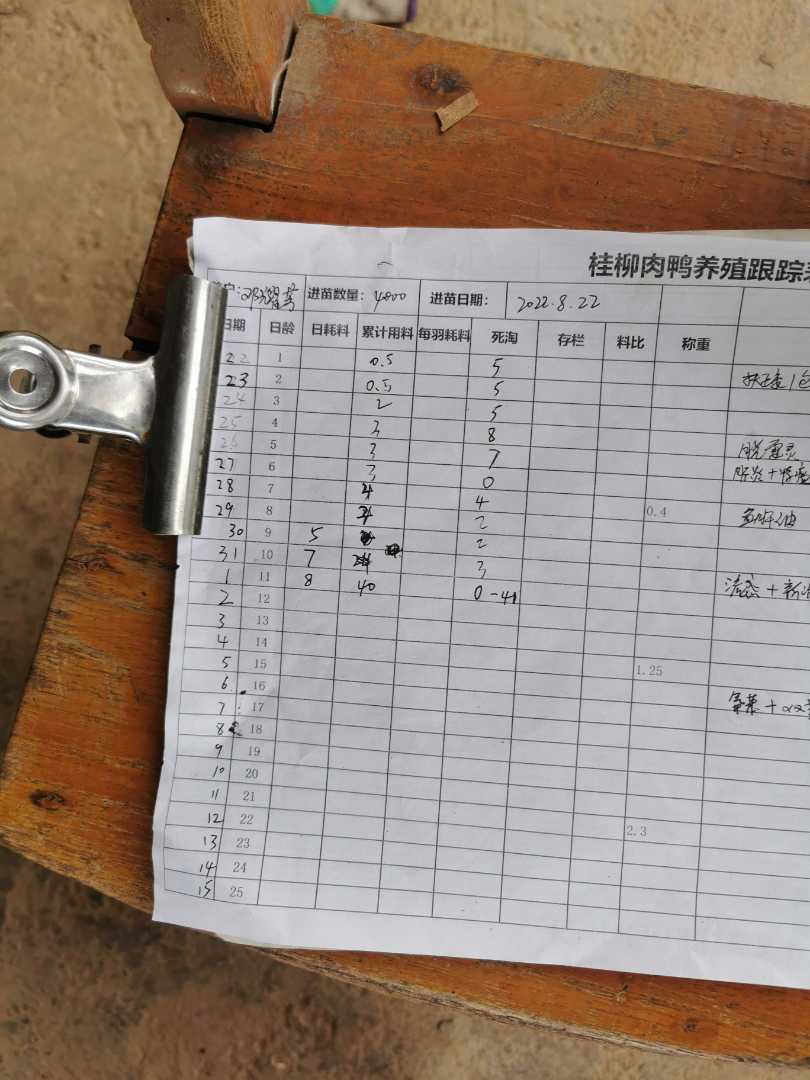 桂柳肉鸭养殖跟踪
户: 进苗数量: 4800 进苗日期: 2022.8.22
日期 日龄 日耗料 累计用料 每羽耗料 死淘 存栏 料比 称重
22 1 0.5 5
23 2 0.5 5
24 3 2 5
25 4 3 8
26 5 3 7
27 6 3 0
28 7 4
29 8 2 0.4
30 9 5 2
31 10 7 3
1 11 8 40 0-41
2 12
3 13
4 14
5 15 1.25
6 16
7 17
8 18
9 19
10 20
11 21
12 22 2.3
13 23
14 24
15 25